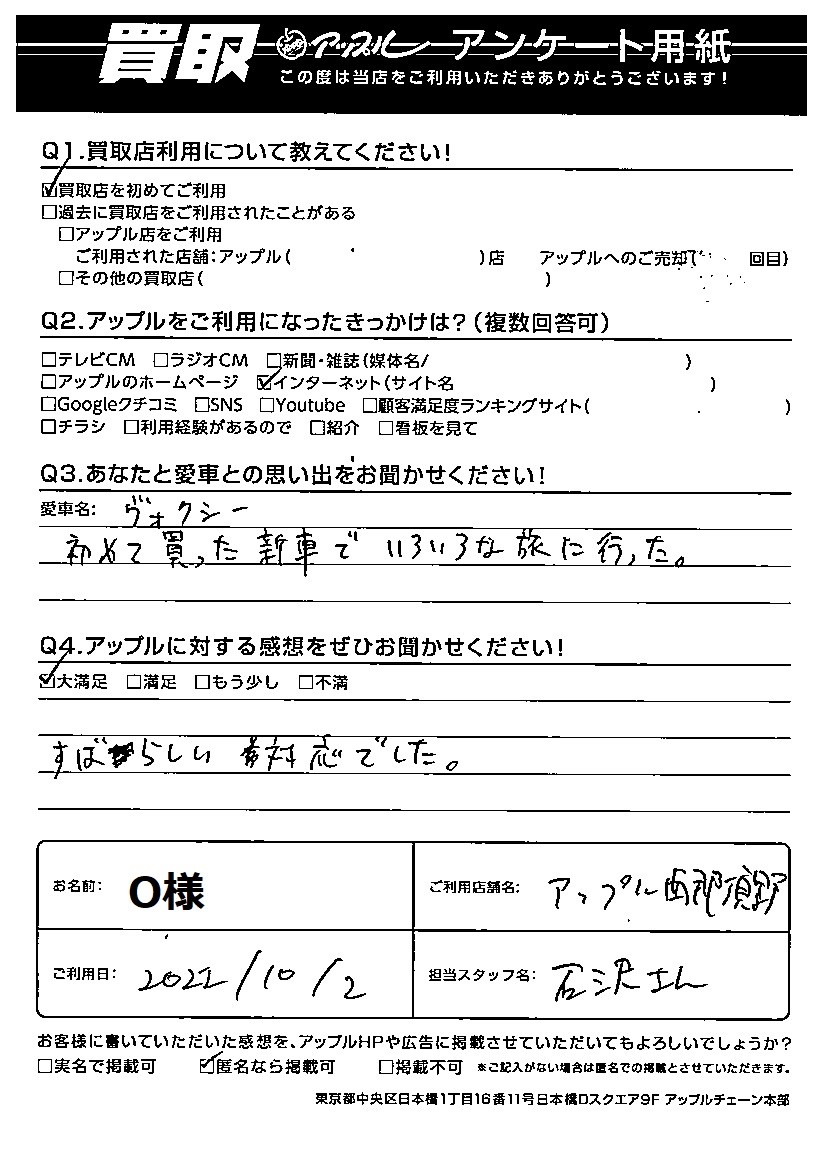 買取 アップル アンケート用紙
この度は当店をご利用いただきありがとうございます!
Q1.買取店利用について教えてください!
☑買取店を初めてご利用
□過去に買取店をご利用されたことがある
□アップル店をご利用
ご利用された店舗:アップル( )店 アップルへのご売却( 回目)
□その他の買取店( )
Q2.アップルをご利用になったきっかけは?(複数回答可)
□テレビCM □ラジオCM □新聞・雑誌(媒体名/ )
□アップルのホームページ ☑インターネット(サイト名 )
□Googleクチコミ □SNS □Youtube □顧客満足度ランキングサイト( )
□チラシ □利用経験があるので □紹介 □看板を見て
Q3.あなたと愛車との思い出をお聞かせください!
愛車名: ヴォクシー
初めて買った新車でいろいろな旅に行った。
Q4.アップルに対する感想をぜひお聞かせください!
☑大満足 □満足 □もう少し □不満
すばらしい対応でした。
お名前: O様 ご利用店舗名: アップル西那須野
ご利用日: 2022/10/2 担当スタッフ名: 石沢さん
お客様に書いていただいた感想を、アップルHPや広告に掲載させていただいてもよろしいでしょうか?
□実名で掲載可 ☑匿名なら掲載可 □掲載不可 ※ご記入がない場合は匿名での掲載とさせていただきます。
東京都中央区日本橋1丁目16番11号日本橋Dスクエア9F アップルチェーン本部